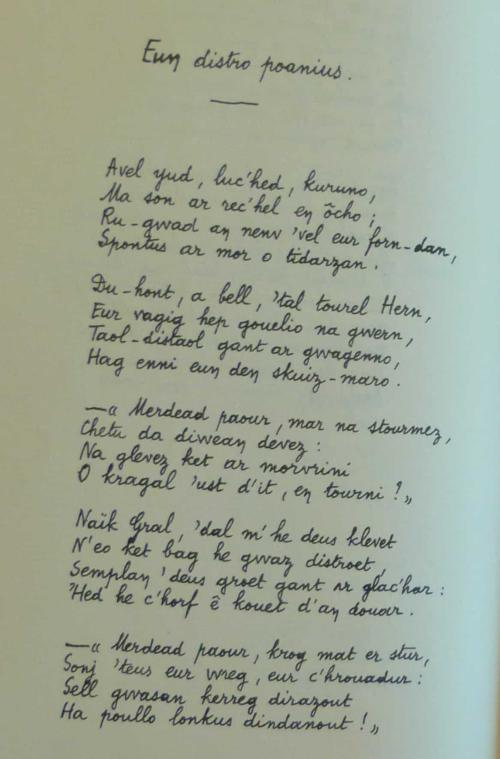 Eun distro poanius.
Avel yud, luc'hed, kuruno,
Ma son ar rec'hel en ôcho ;
Ru-gwad an nenv 'vel eur forn-dan,
Spontus ar mor o tidarzan.
Du-hont, a bell, 'tal tourel Hern,
Eur vagig hep gouelio na gwern,
Taol-distaol gant ar gwagenno,
Hag enni eun den skuiz-maro.
—« Merdead paour, mar na stourmez,
Chetu da diwean devez :
Na glevez ket ar morvrini
O kragal 'ust d'it, en tourni ! »
Naïk Gral, 'dal m'he deus klevet
N'eo ket bag he gwaz distroet,
Semplan 'deus groet gant ar glac'har :
'Hed he c'horf ê kouet d'an douar.
—« Merdead paour, krog mat er stur,
Sonj 'teus eur wreg, eur c'hrouadur :
Sell gwasan kerreg dirazout
Ha poullo lonkus dindanout ! »